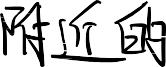 附近的